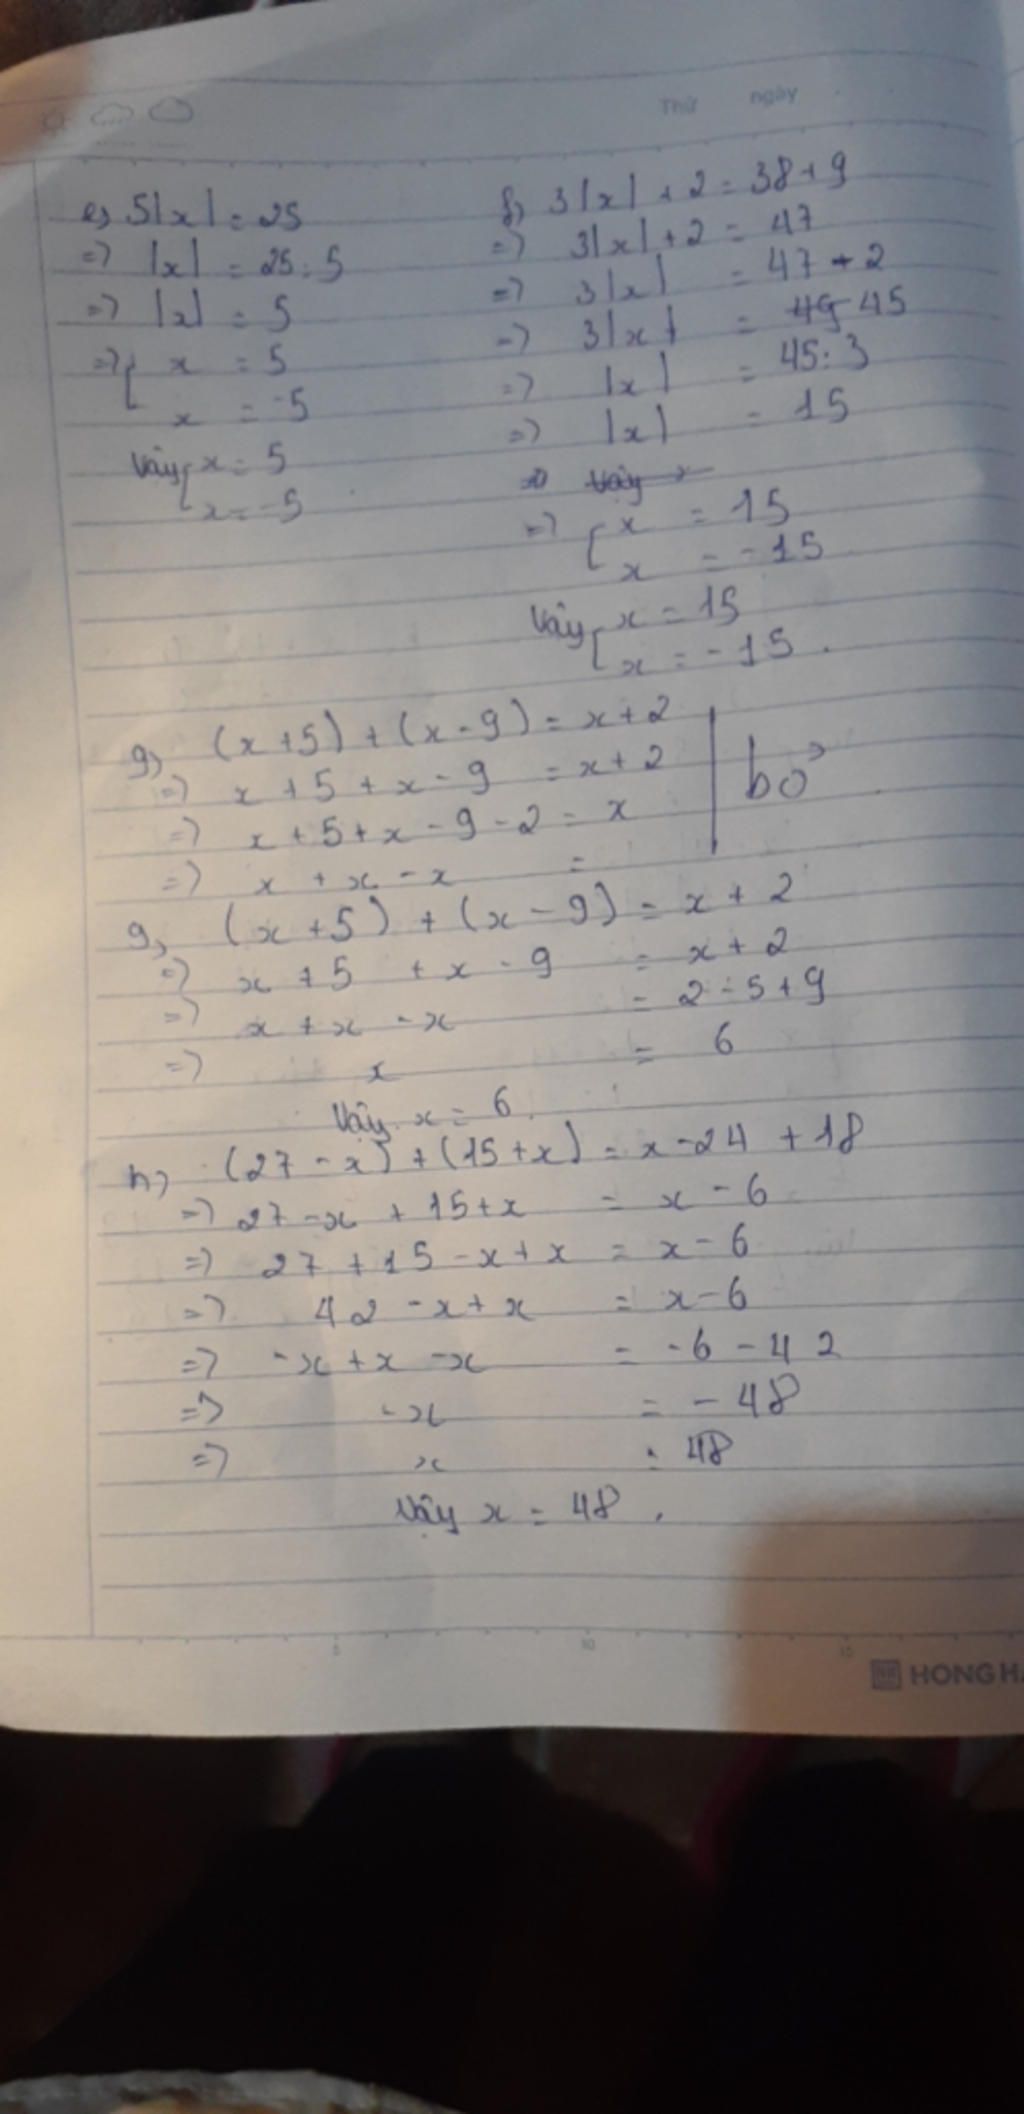 Thứ ngày
e, 5|x| = 25
=> |x| = 25 : 5
=> |x| = 5
=> [ x = 5
x = -5
Vậy [ x = 5
x = -5
f, 3|x| + 2 = 38 + 9
=> 3|x| + 2 = 47
=> 3|x| = 47 - 2
=> 3|x| = 49 45
=> |x| = 45 : 3
=> |x| = 15
=> Vậy x
=> [ x = 15
x = -15
Vậy [ x = 15
x = -15.
g, (x + 5) + (x - 9) = x + 2
=> x + 5 + x - 9 = x + 2
=> x + 5 + x - 9 - 2 = x
=> x + x - x =
bỏ
g, (x + 5) + (x - 9) = x + 2
=> x + 5 + x - 9 = x + 2
=> x + x - x = 2 - 5 + 9
=> x = 6
Vậy x = 6.
h, (27 - x) + (15 + x) = x - 24 + 18
=> 27 - x + 15 + x = x - 6
=> 27 + 15 - x + x = x - 6
=> 42 - x + x = x - 6
=> -x + x - x = -6 - 42
=> -x = -48
=> x = 48
Vậy x = 48.
5 10 15
HONG H